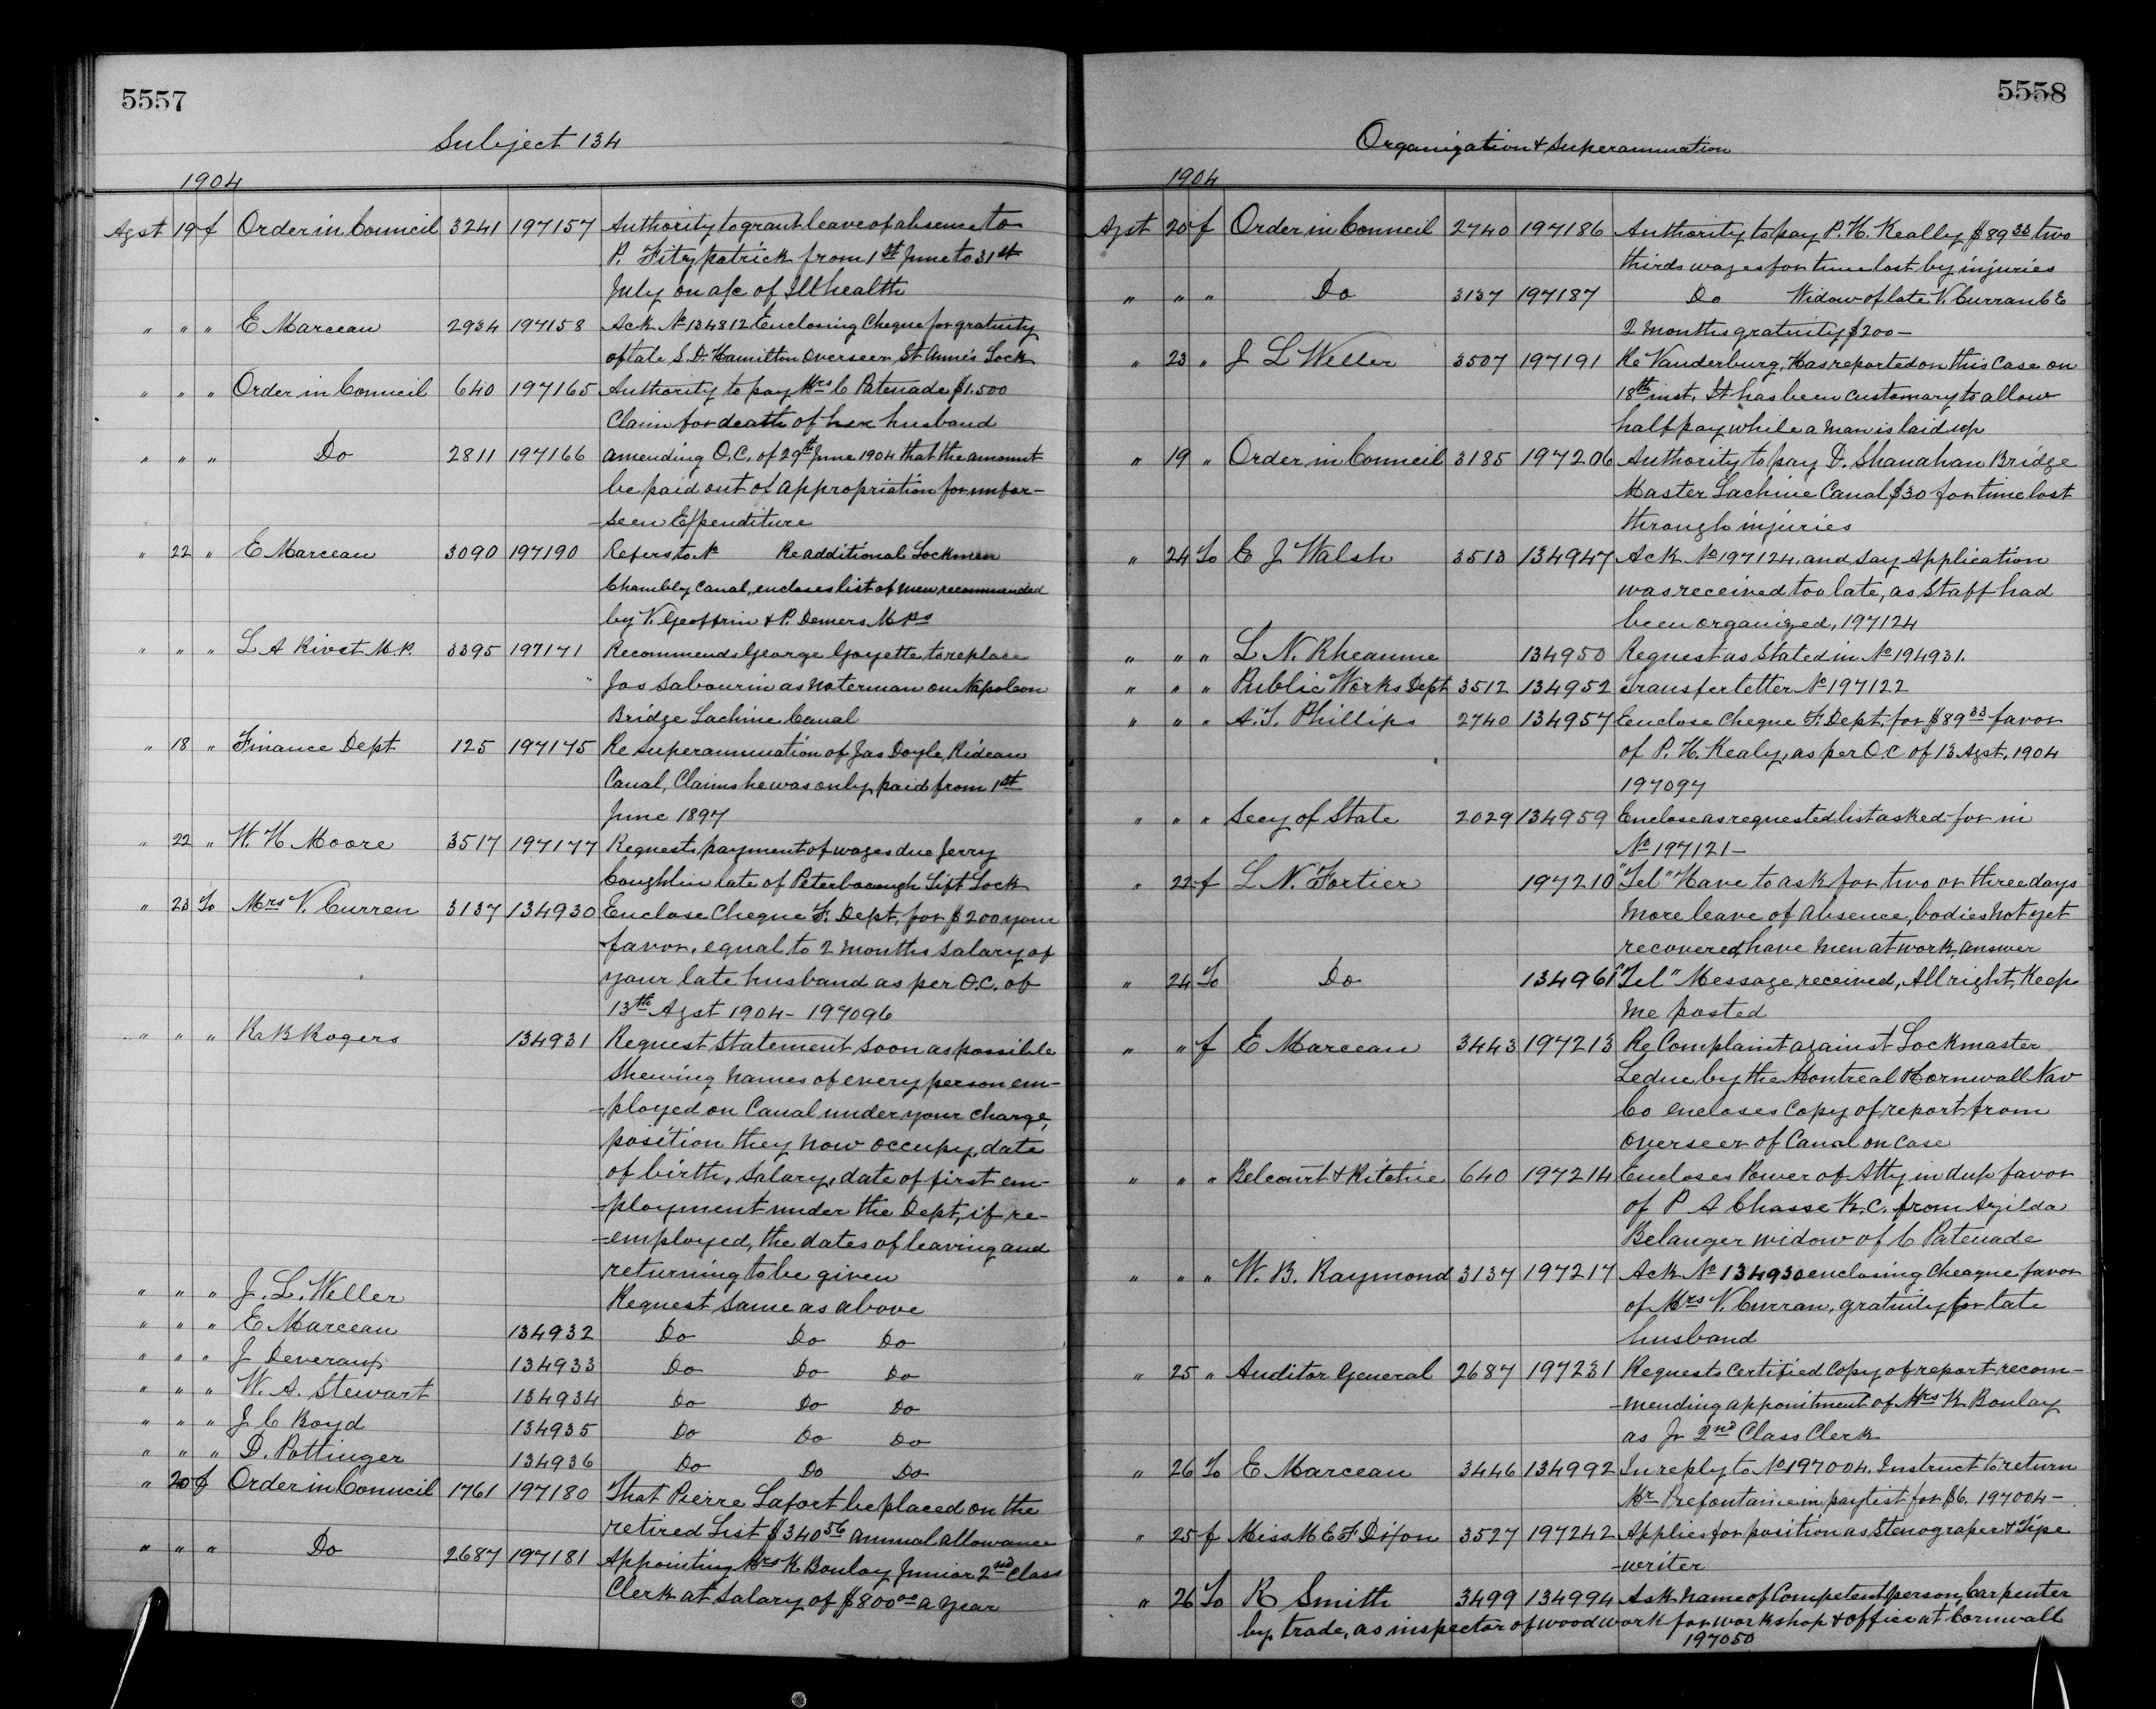 5557
Subject 134
1904
Agst 19 f Order in Council 3241 197157 Authority to grant leave of absence to
P. Fitzpatrick from 1st June to 31st
July on a/c of Ill health
" " " E Marceau 2934 197158 Ack No 134812 Enclosing Cheque for gratuity
of late S. D. Hamilton Overseer St Anne's Lock
" " " Order in Council 640 197165 Authority to pay Mrs C Patenade $1.500
Claim for death of her husband
" " " Do 2811 197166 amending O.C. of 29th June 1904 that the amount
be paid out of appropriation for unfor-
-seen Expenditure
" 22 " E Marceau 3090 197190 Refers to No Re additional Lockmen
Chambly Canal, encloses list of men recommended
by V. Geoffrion & P. Demers M.Ps
" " " L A Rivet M.P. 3395 197171 Recommends George Goyette to replace
Jos Sabourin as Waterman on Napoleon
Bridge Lachine Canal
" 18 " Finance Dept 125 197175 Re superannuation of Jas Doyle, Rideau
Canal, Claims he was only paid from 1st
June 1897
" 22 " W. H Moore 3517 197177 Requests payment of wages due Jerry
Coughlin late of Peterborough Lift Lock
" 23 To Mrs V. Curren 3137 134930 Enclose Cheque F. Dept. for $200 your
favor, equal to 2 months salary of
your late husband as per O.C. of
13th Agst 1904 - 197096
" " " R B Rogers 134931 Request Statement soon as possible
Shewing names of every person em-
-ployed on Canal under your charge,
position they now occupy, date
of birth, salary, date of first em-
-ployment under the Dept, if re-
-employed, the dates of leaving and
returning to be given
" " " J. L. Weller Request same as above
" " " E Marceau 134932 Do Do Do
" " " J Deveraux 134933 Do Do Do
" " " W. A. Stewart 134934 Do Do Do
" " " J C Boyd 134935 Do Do Do
" " " D. Pottinger 134936 Do Do Do
" 20 f Order in Council 1761 197180 That Pierre Lafort be placed on the
retired List $340 56 annual allowance
" " " Do 2687 197181 Appointing Mrs K Boulay Junior 2nd Class
Clerk at Salary of $800 00 a year
5558
Organization & Superannuation
1904
Agst 20 f Order in Council 2740 197186 Authority to pay P. H. Keally $89 33 two
thirds wages for time lost by injuries
" " " Do 3137 197187 Do Widow of late V. Curran C E
2 months gratuity $200 -
" 23 " J L Weller 3507 197191 Re Vanderburg, Has reported on this case on
18th inst. It has been customary to allow
half pay while a man is laid up
" 19 " Order in Council 3185 197206 Authority to pay D. Shanahan Bridge
Master Lachine Canal $30 for time lost
through injuries
" 24 To E J Walsh 3513 134947 Ack No 197124, and say Application
was received too late, as Staff had
been organized, 197124
" " " L N. Rheaume 134950 Request as Stated in No 194931.
" " " Public Works Dept 3512 134952 Transfer letter No 197122
" " " A. T. Phillips 2740 134957 Enclose Cheque F. Dept. for $89 33 favor
of P. H. Kealy, as per O.C of 13 Agst. 1904
197097
" " " Secy of State 2029 134959 Enclose as requested list asked for in
No 197121 -
" 22 f L N. Fortier 197210 "Tel" Have to ask for two or three days
more leave of absence, bodies not yet
recovered, have men at work, answer
" 24 To Do 134961 "Tel" Message received, All right, Keep
me posted
" " f E Marceau 3443 197213 Re Complaint against Lockmaster
Leduc by the Montreal & Cornwall Nav
Co encloses Copy of report from
Overseer of Canal on case
" " " Belcourt & Ritchie 640 197214 Encloses Power of Atty in dup favor
of P A Chasse K. C. from Azilda
Belanger widow of C Patenade
" " " W. B. Raymond 3137 197217 Ack No 134930 enclosing Cheque favor
of Mrs V. Curran, gratuity for late
husband
" 25 " Auditor General 2687 197231 Requests Certified Copy of report recom-
-mending appointment of Mrs K Boulay
as Jr 2nd Class Clerk
" 26 To E Marceau 3446 134992 In reply to No 197004. Instruct to return
Mr Prefontaine in paylist for $6. 197004 -
" 25 f Miss M E F Dixon 3527 197242 Applies for position as Stenograper & Tipe
-writer
" 26 To R Smith 3499 134994 Ask name of Competent person, Carpenter
by trade, as inspector of wood work for workshop & office at Cornwall
197050